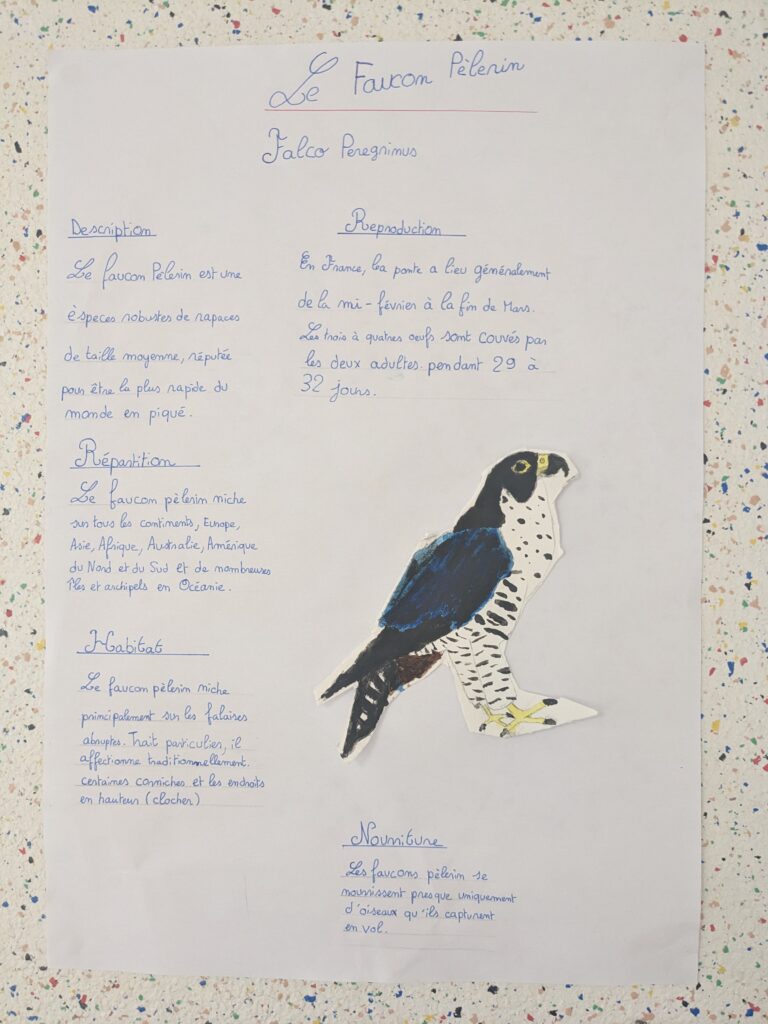 Le Faucon Pèlerin
Falco Peregrinus
Description
Le faucon Pèlerin est une
èspeces robustes de rapaces
de taille moyenne, réputée
pour être la plus rapide du
monde en piqué.
Répartition
Le faucon pèlerin niche
sur tous les continents, Europe,
Asie, Afrique, Australie, Amérique
du Nord et du Sud et de nombreuses
îles et archipels en Océanie.
Habitat
Le faucon pèlerin niche
principalement sur les falaises
abruptes. Trait particulier, il
affectionne traditionnellement.
certaines corniches et les endroits
en hauteur (clocher)
Reproduction
En France, la ponte a lieu généralement
de la mi-février à la fin de Mars.
Les trois à quatres oeufs sont couvés par
les deux adultes pendant 29 à
32 jours.
Nourriture
Les faucons pèlerin se
nourrissent presque uniquement
d'oiseaux qu'ils capturent
en vol.